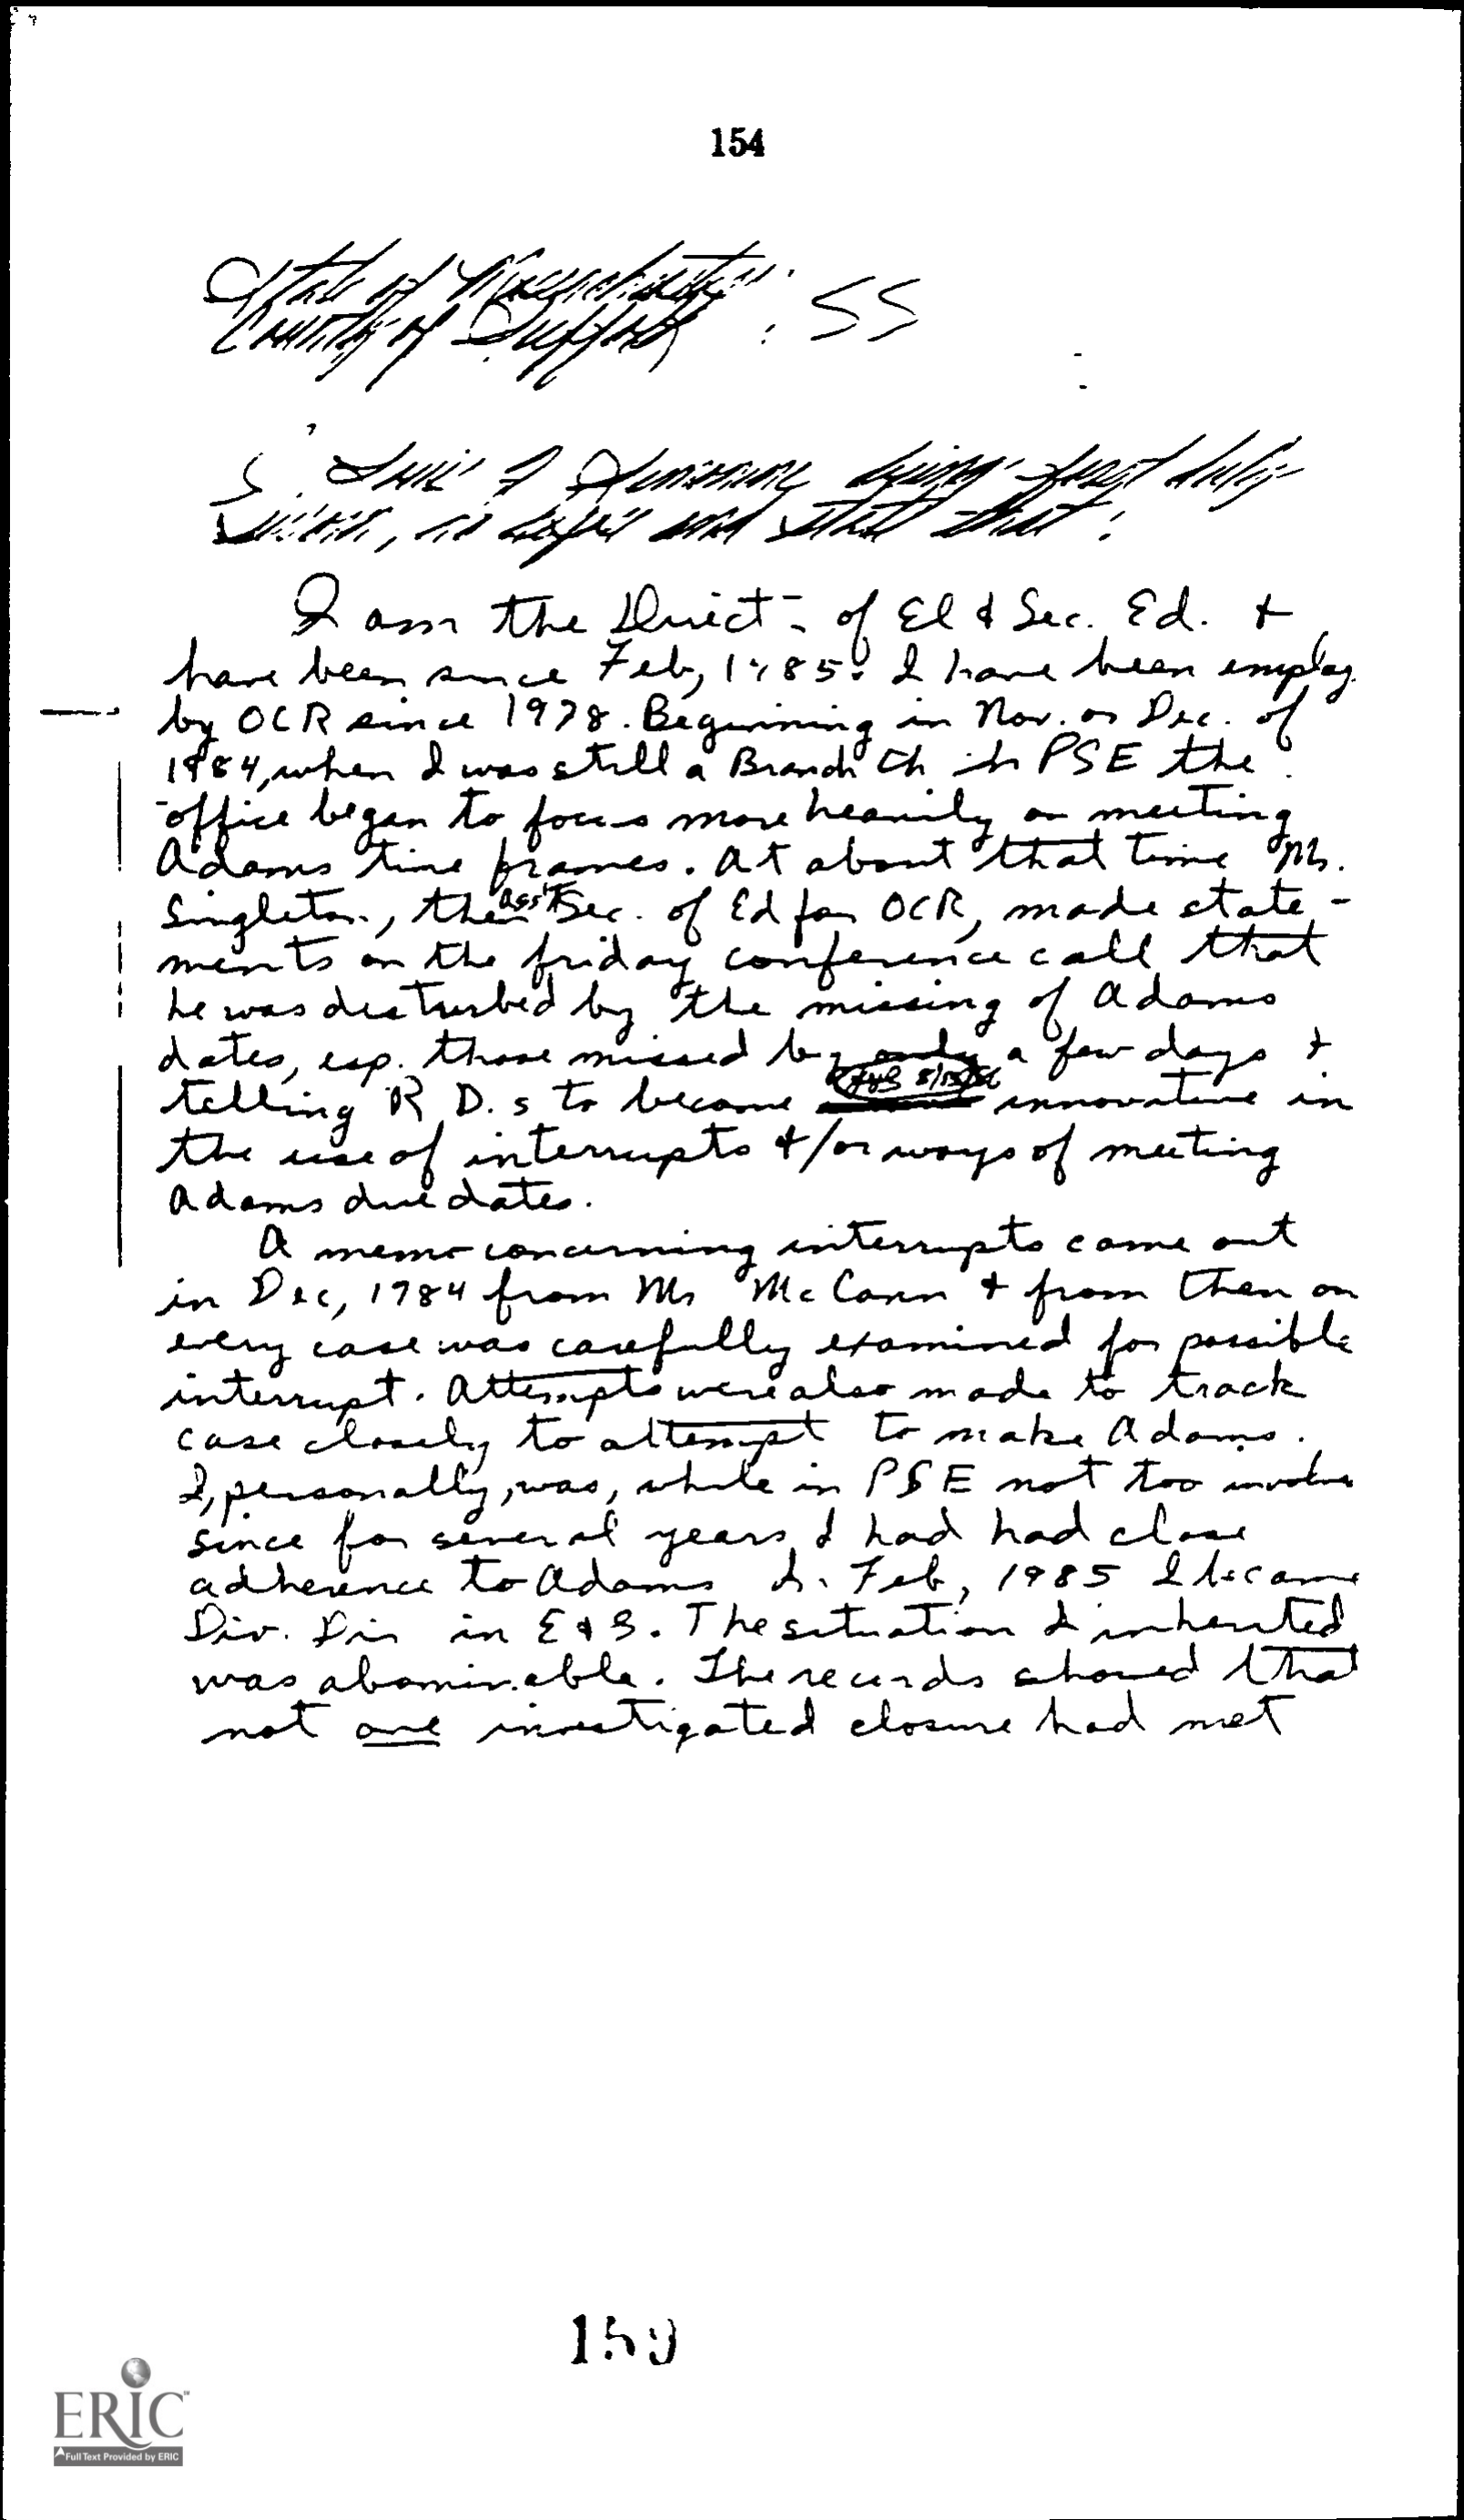 154
State of Massachusetts
County of Suffolk : SS
I, being first duly
sworn, do depose and state that:
I am the Direct- of El & Sec. Ed. +
have been since Feb, 1985. I have been employ
by OCR since 1978. Beginning in Nov. or Dec. of
1984, when I was still a Branch Ch in PSE the
office began to focus more heavily on meeting
Adams time frames. At about that time Mr.
Singleton, then Ass't Sec. of Ed for OCR, made state-
ments on the friday conference call that
he was disturbed by the missing of Adams
dates, esp. those missed by only a few days +
telling R D.s to become innovative in
the use of interrupts +/or ways of meeting
Adams due dates.
A memo concerning interrupts came out
in Dec, 1984 from Mr McCann + from then on
every case was carefully examined for possible
interrupt. Attempts were also made to track
case closely to attempt to make Adams.
I, personally, was, while in PSE not too involve
since for several years I had had close
adherence to Adams In Feb, 1985 I became
Div. Dir in E & S. The situation I inherited
was abominable. The records showed that
not one investigated closure had met
159
ERIC
Full Text Provided by ERIC